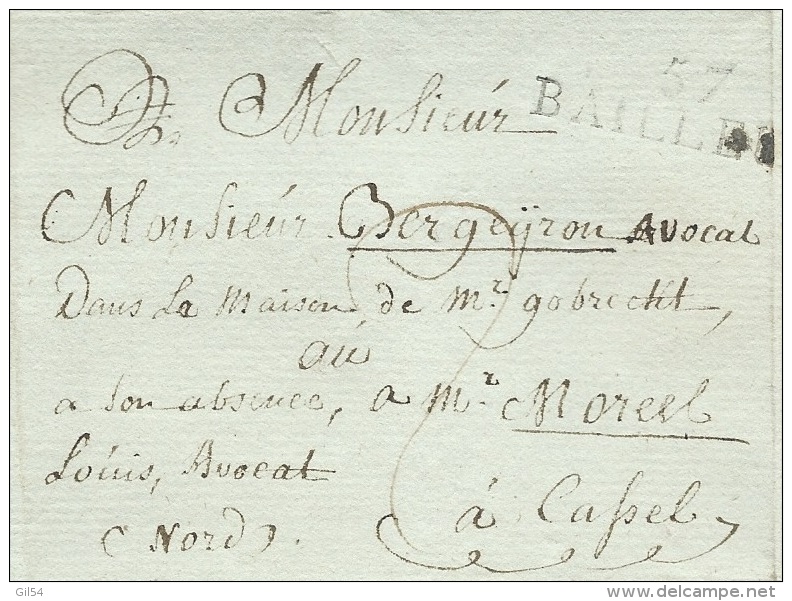 57
BAILLEU
A Monsieur
Monsieur Bergeÿron Avocat
Dans La Maison de Mr. gobrecht,
oú
a Son absence, a Mr. Moreel
Louis, Avocat
á Cassel
(Nord).
Gil54
delcampe.net